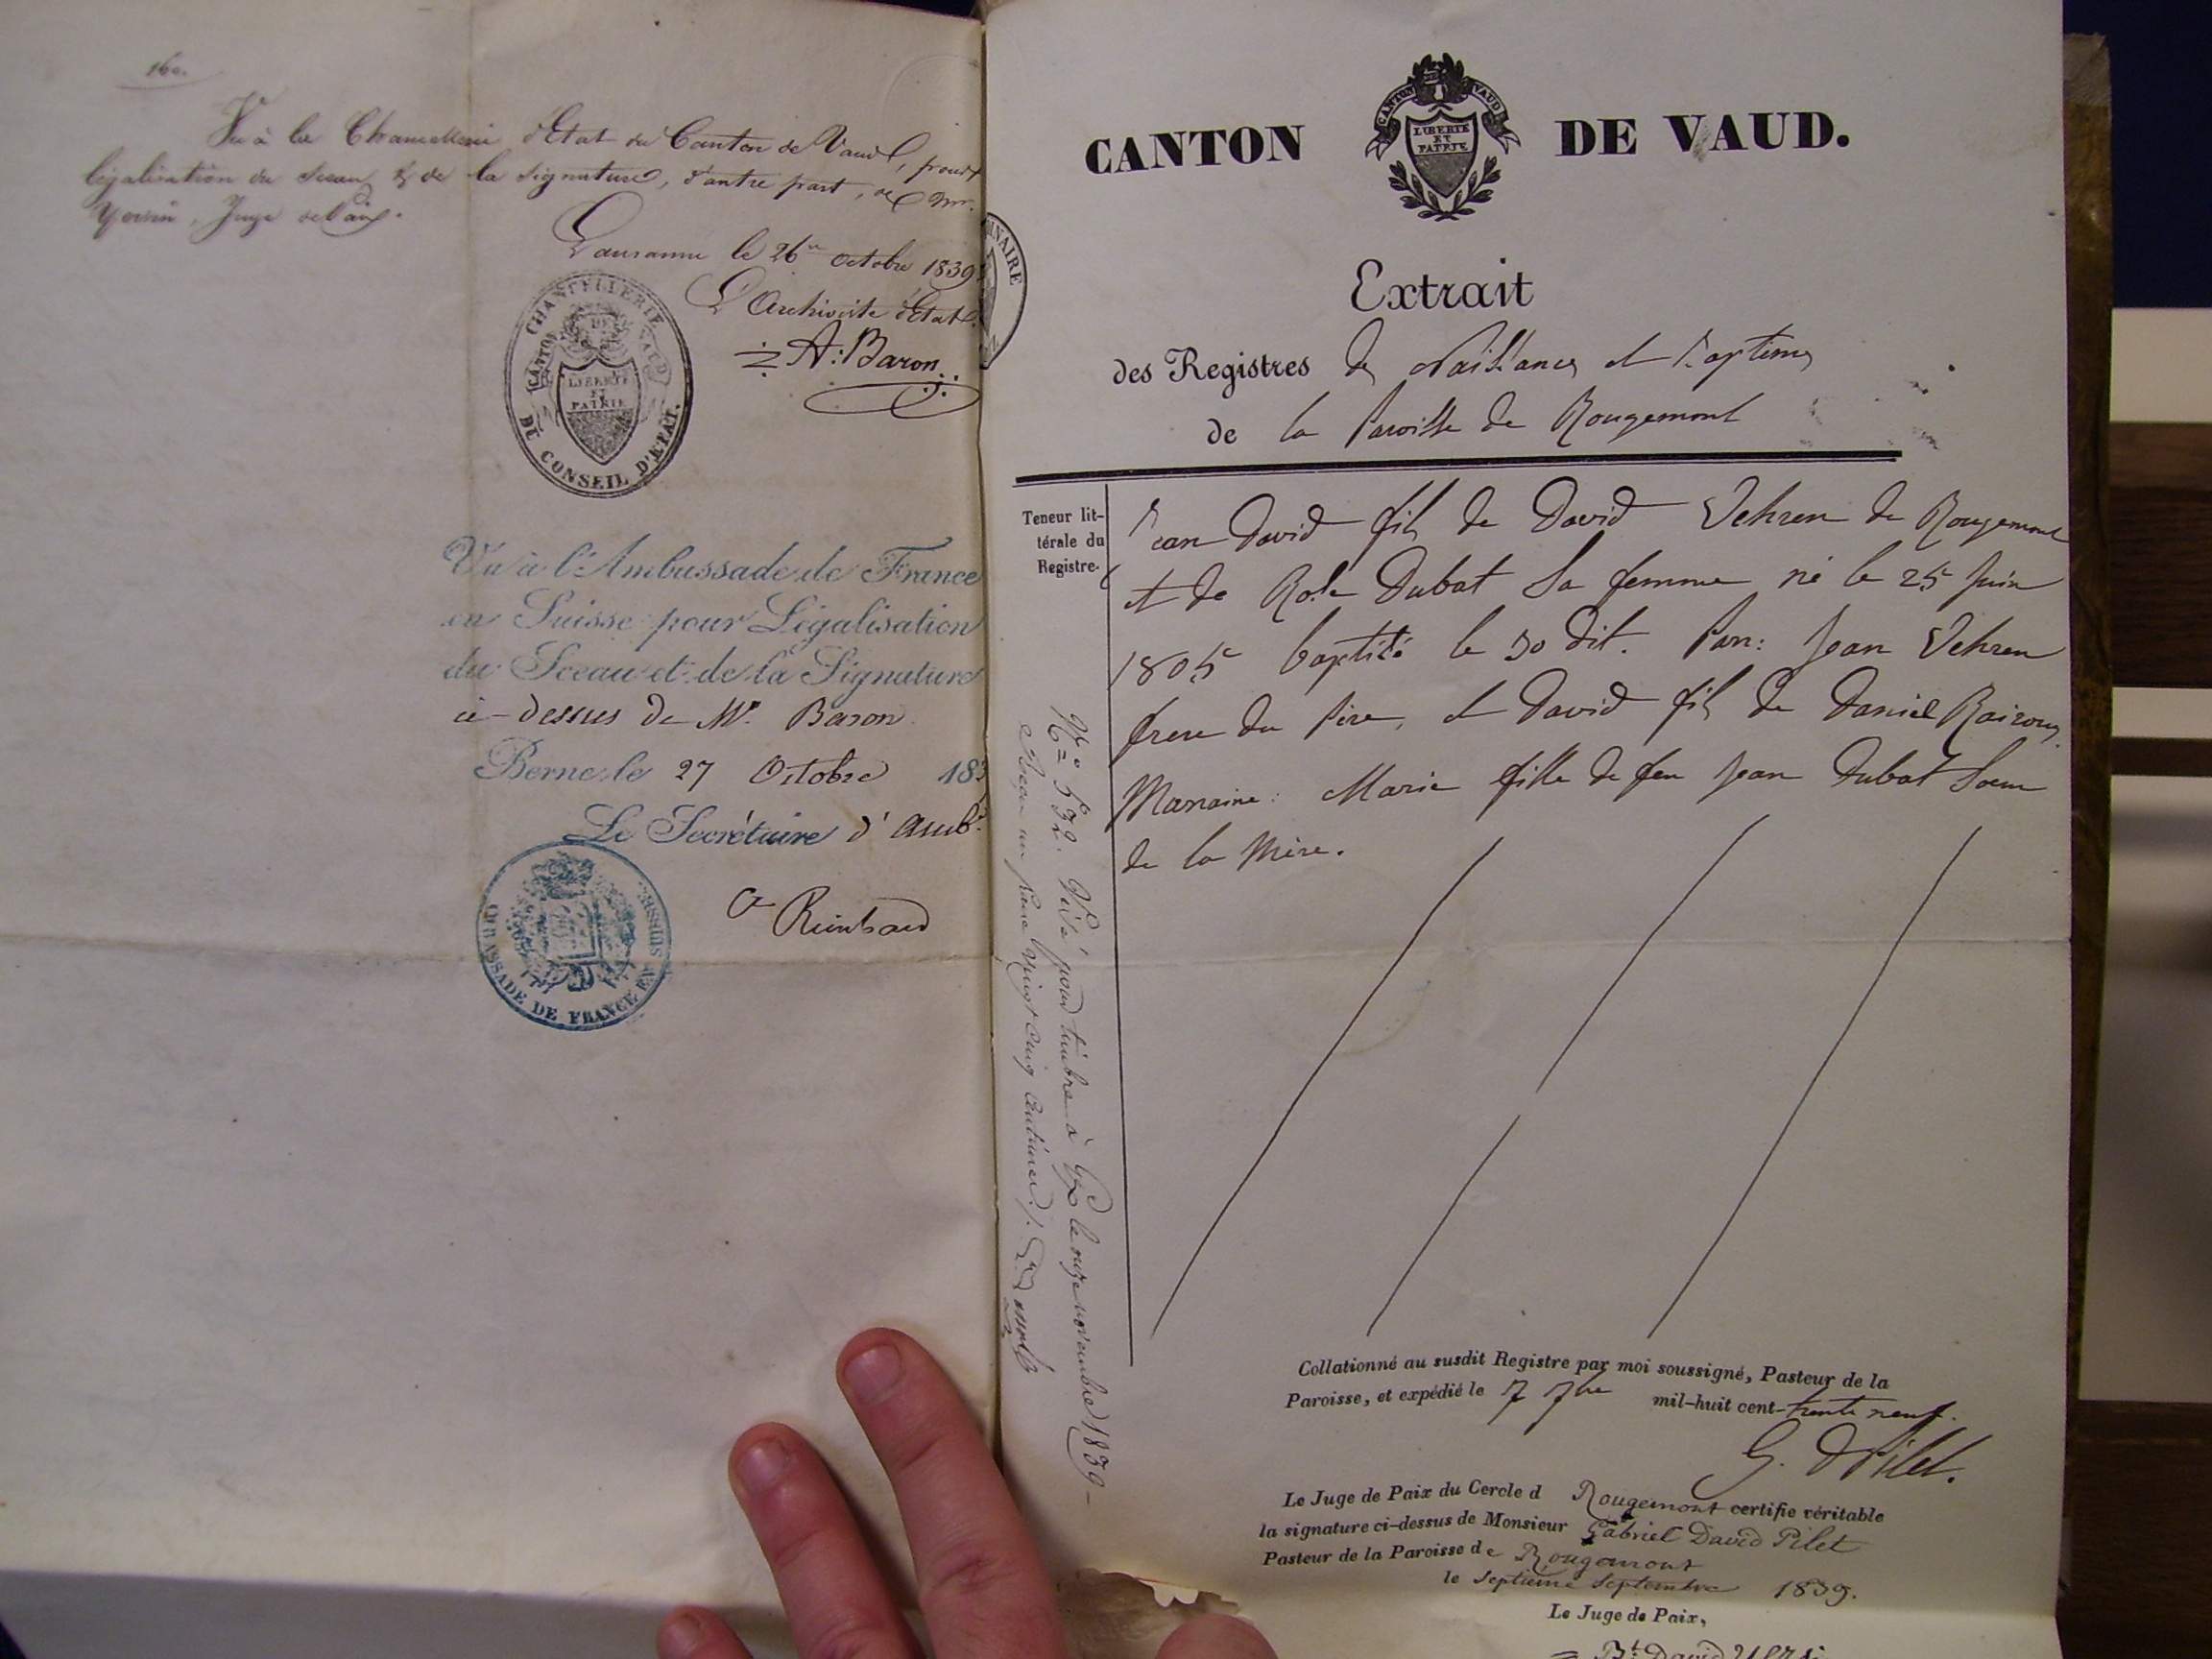 160.
Vu à la Chancellerie d'Etat du Canton de Vaud, pour
légalisation du sceau & de la signature, d'autre part, de Mr.
Yersin, Juge de Paix.
Lausanne le 26 octobre 1839
L'Archiviste d'Etat.
A: Baron.
CHANCELLERIE
CANTON DE VAUD
LIBERTÉ
ET
PATRIE
DU CONSEIL D'ETAT.
Vu à l'Ambassade de France
en Suisse pour Légalisation
du Sceau et de la Signature
ci-dessus de Mr. Baron
Berne le 27 Octobre 183
Le Secrétaire d'Amb.
AMBASSADE DE FRANCE EN SUISSE
INAIRE
CANTON DE VAUD.
CANTON VAUD
LIBERTE
ET
PATRIE
Extrait
des Registres de Naissances et Baptêmes
de la Paroisse de Rougemont
Teneur lit-
térale du
Registre.
Jean David fils de David Yehren de Rougemont
et de Rose Dubat sa femme né le 25 Juin
1805 baptisé le 30 dit. Par: Jean Yehren
frere du Père, et David fils de Daniel
Marraine: Marie fille de feu Jean Dubat Soeur
de la Mère.
N.o 532. Visé pour timbre à Gex le onze novembre 1839 -
Reçu un franc vingt cinq centimes.
Collationné au susdit Registre par moi soussigné, Pasteur de la
Paroisse, et expédié le 7 7bre mil-huit cent-trente neuf.
G. D Pilet.
Le Juge de Paix du Cercle d Rougemont certifie véritable
la signature ci-dessus de Monsieur Gabriel David Pilet
Pasteur de la Paroisse de Rougemont
le Septieme Septembre 1839.
Le Juge de Paix,
David